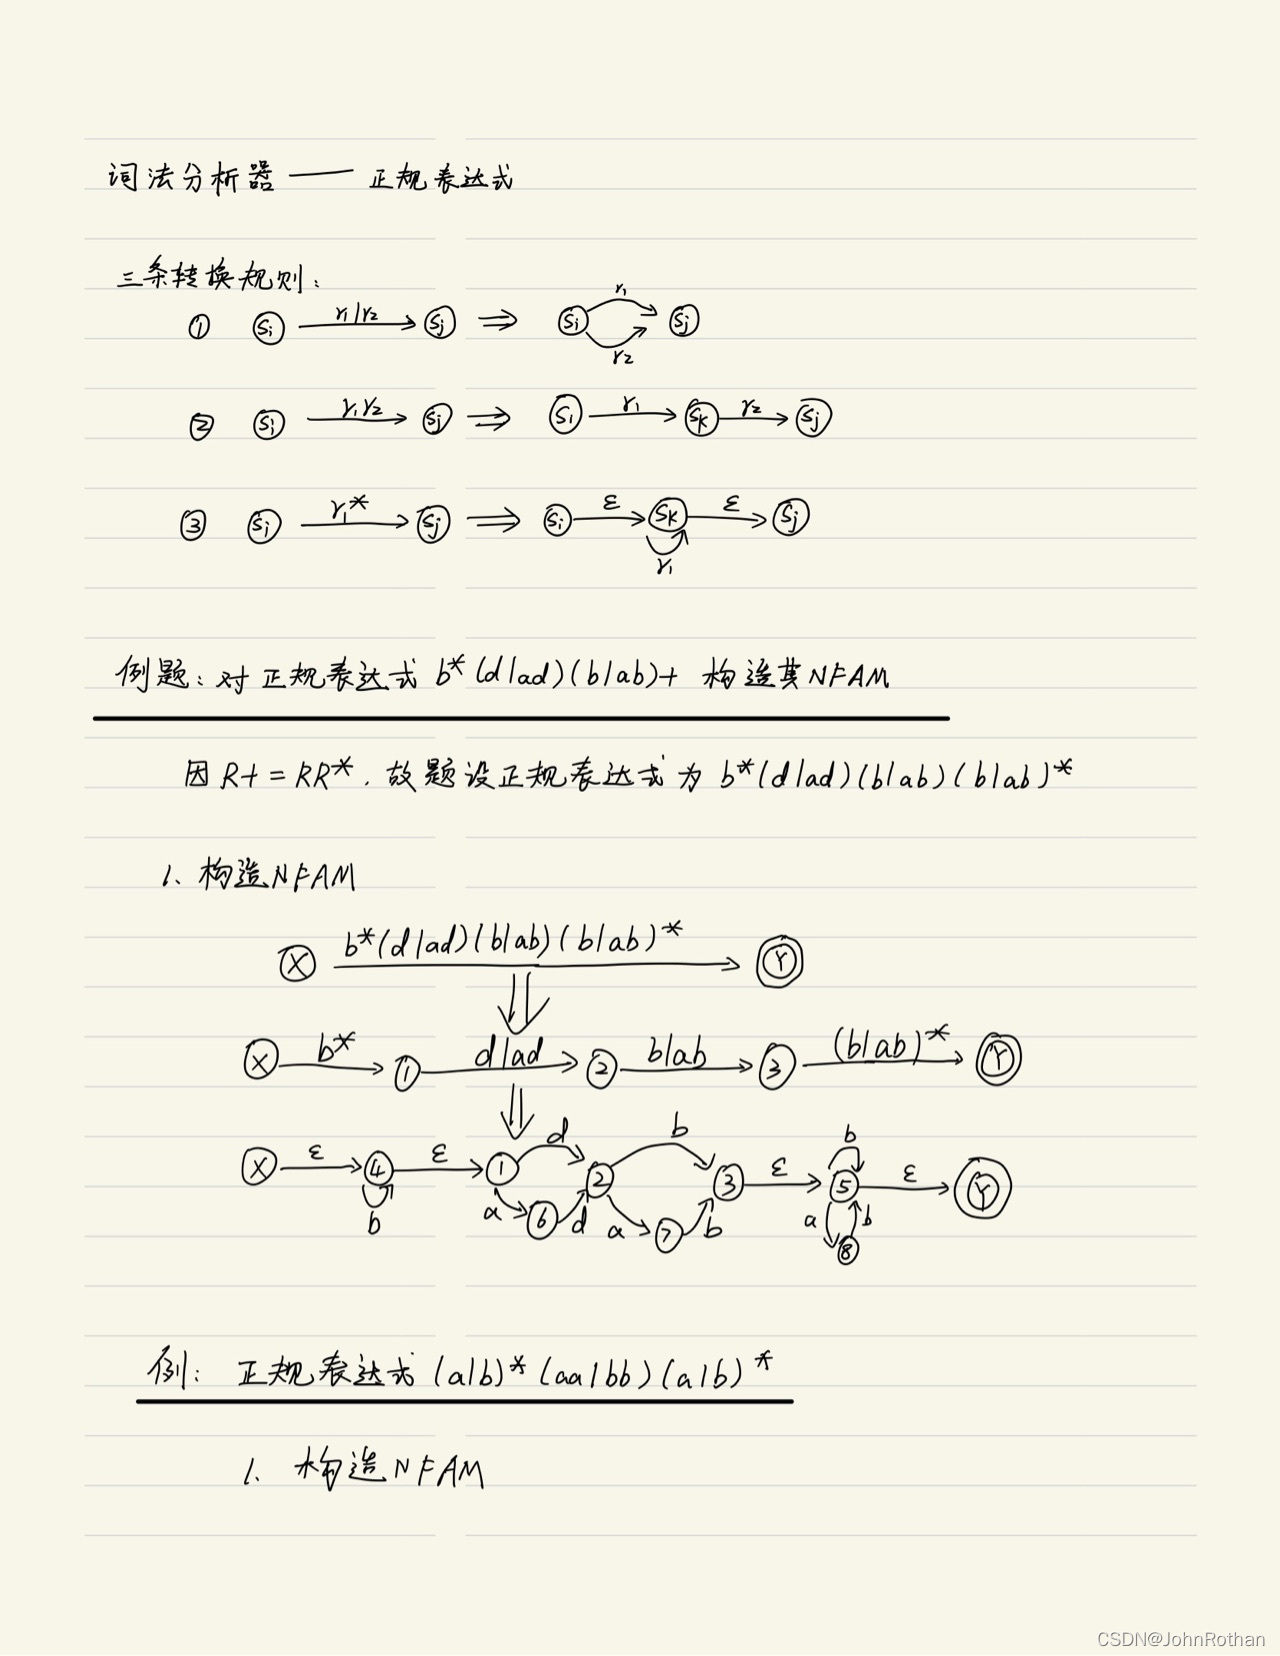 词法分析器——正规表达式
三条转换规则：
① Si r₁|r₂ Sj ⇒ Si r₁ r₂ Sj
② Si r₁r₂ Sj ⇒ Si r₁ Sk r₂ Sj
③ Si r₁* Sj ⇒ Si ε Sk ε Sj
r₁
例题：对正规表达式 b*(d|ad)(b|ab)+ 构造其NFAM
因R+=RR*，故题设正规表达式为 b*(d|ad)(b|ab)(b|ab)*
1、构造NFAM
X b*(d|ad)(b|ab)(b|ab)* Y
X b* 1 d|ad 2 b|ab 3 (b|ab)* Y
X ε 4 ε 1 d 2 b 3 ε 5 b ε Y
b a 6 d a 7 b a 8 b
例：正规表达式 (a|b)*(aa|bb)(a|b)*
1、构造NFAM
CSDN@JohnRothan